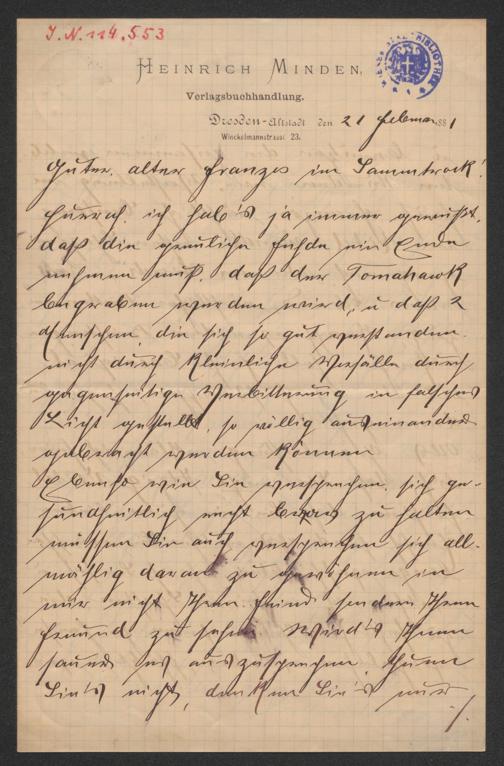 J.N. 114.553
HEINRICH MINDEN,
Verlagsbuchhandlung.
Dresden-Altstadt den 21 Februar 1881
Winckelmannstrasse 23.
Guter, alter Franzos im Sammtrock!
Hurrah, ich hab's ja immer gewußt,
daß die greuliche Fehde ein Ende
nehmen muß, daß der Tomahawk
begraben werden wird, u daß 2
Menschen, die sich so gut verstanden
nicht durch kleinliche Vorfälle durch
gegenseitige Verbitterung in falsches
Licht gestellt, so völlig auseinander
gebracht werden können
Ebenso wie Sie versprechen, sich ge-
sundheitlich recht brav zu halten
müssen Sie auch versprechen sich all-
mählig daran zu gewöhnen in
mir nicht Ihren Feind sondern Ihren
Freund zu sehen. Wird's Ihnen
sauer es auszusprechen, thuen
Sie's nicht, denken Sie's nur
./.